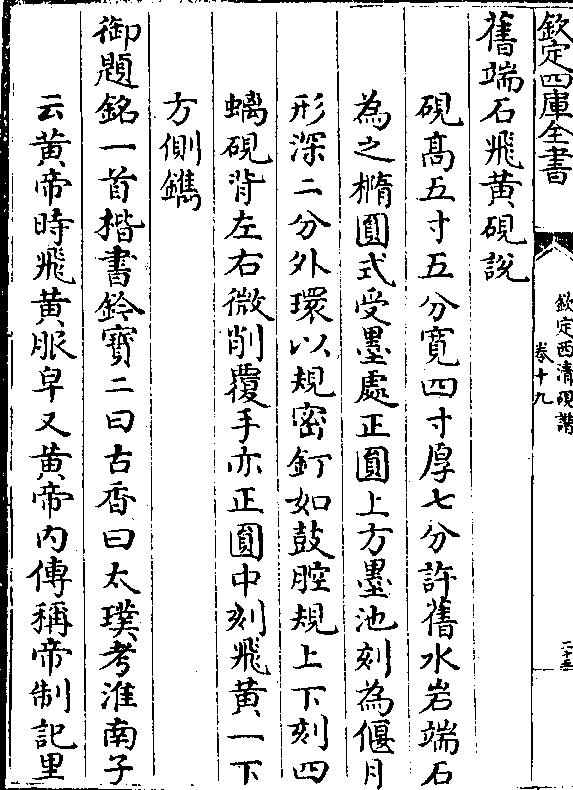 欽定四庫全書
欽定西清硯譜
卷十九
舊端石飛黄硯說
硯髙五寸五分寛四寸厚七分許舊水岩端石
為之橢圓式受墨處正圓上方墨池刻為偃月
形深二分外環以規密釘如鼓腔規上下刻四
螭硯背左右微削覆手亦正圓中刻飛黄一下
方側鐫
御題銘一首楷書鈐寶二曰古香曰太璞考淮南子
云黄帝時飛黄服皁又黄帝内傳稱帝制記里